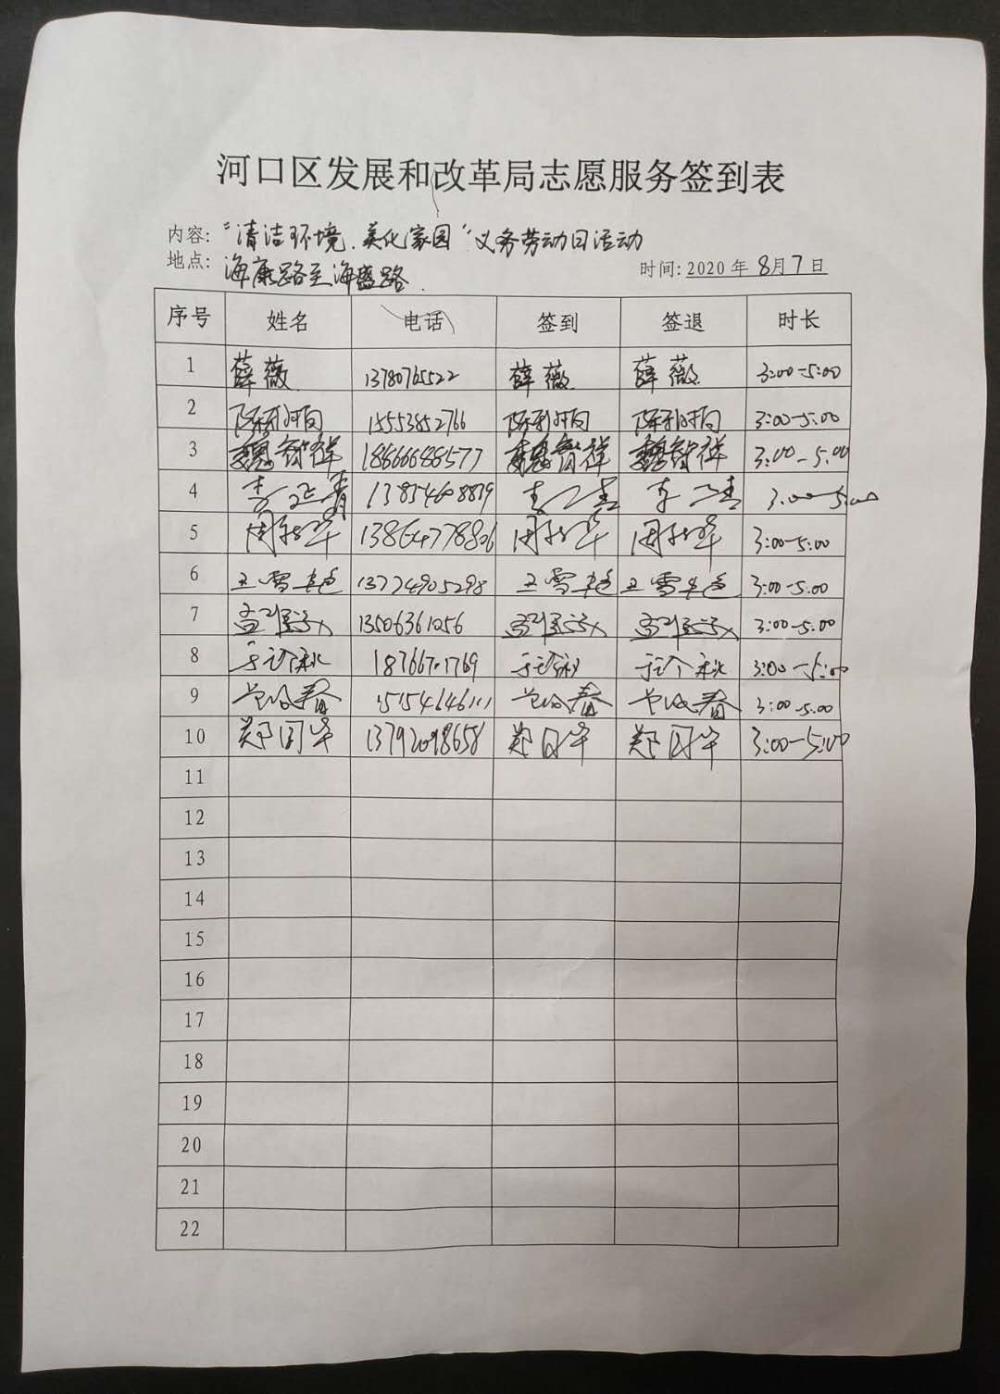 河口区发展和改革局志愿服务签到表
内容:"清洁环境、美化家园"义务劳动日活动
地点:海康路至海盛路
时间:2020年8月7日
序号 姓名 电话 签到 签退 时长
1 薛薇 13780765522 薛薇 薛薇 3:00-5:00
2 陈利向 15553852766 陈利向 陈利向 3:00-5:00
3 魏智祥 18666688577 魏智祥 魏智祥 3:00-5:00
4 3:00-5:00
5 13864778806 3:00-5:00
6 王雪艳 王雪艳 王雪艳 3:00-5:00
7 13506361056 3:00-5:00
8 于诊秋 18766701769 于诊秋 于诊秋 3:00-5:00
9 15154646111 3:00-5:00
10 郑国华 13792098658 郑国华 郑国华 3:00-5:00
11
12
13
14
15
16
17
18
19
20
21
22